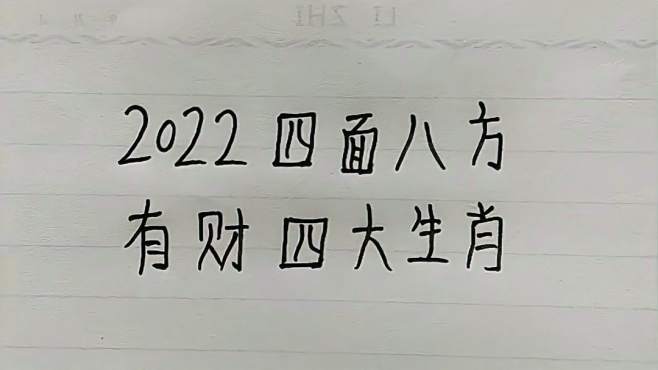 2022四面八方
有财四大生肖